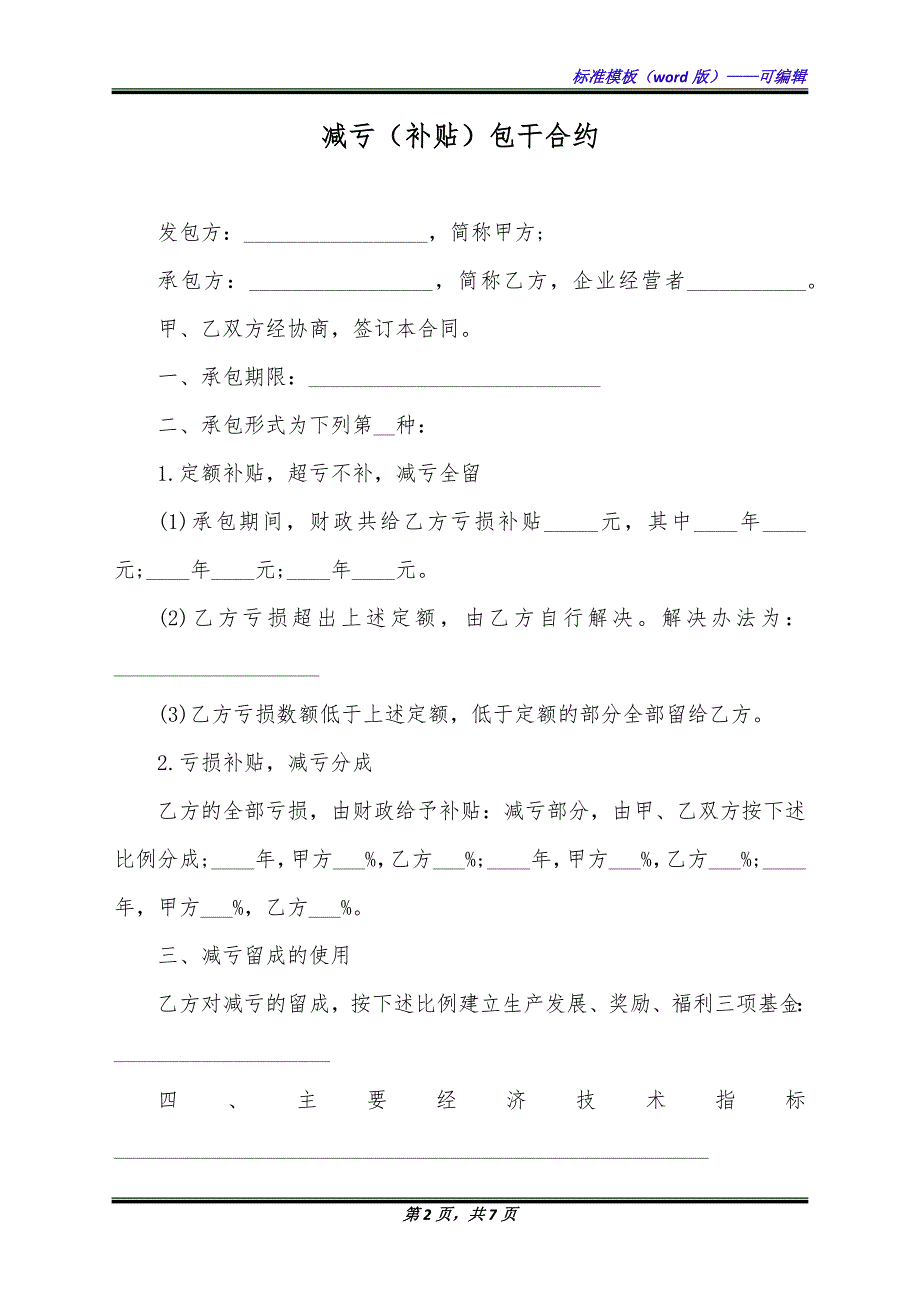 标准模板（word 版）——可编辑
减亏（补贴）包干合约
发包方：_________________，简称甲方;
承包方：_________________，简称乙方，企业经营者___________。
甲、乙双方经协商，签订本合同。
一、承包期限：___________________________
二、承包形式为下列第__种：
1.定额补贴，超亏不补，减亏全留
(1)承包期间，财政共给乙方亏损补贴_____元，其中____年____
元;____年____元;____年____元。
(2)乙方亏损超出上述定额，由乙方自行解决。解决办法为：
___________________
(3)乙方亏损数额低于上述定额，低于定额的部分全部留给乙方。
2.亏损补贴，减亏分成
乙方的全部亏损，由财政给予补贴：减亏部分，由甲、乙双方按下述
比例分成;____年，甲方___%，乙方___%;____年，甲方___%，乙方___%;____
年，甲方___%，乙方___%。
三、减亏留成的使用
乙方对减亏的留成，按下述比例建立生产发展、奖励、福利三项基金：
____________________
四、主要经济技术指标
_______________________________________________________
第 2 页，共 7 页